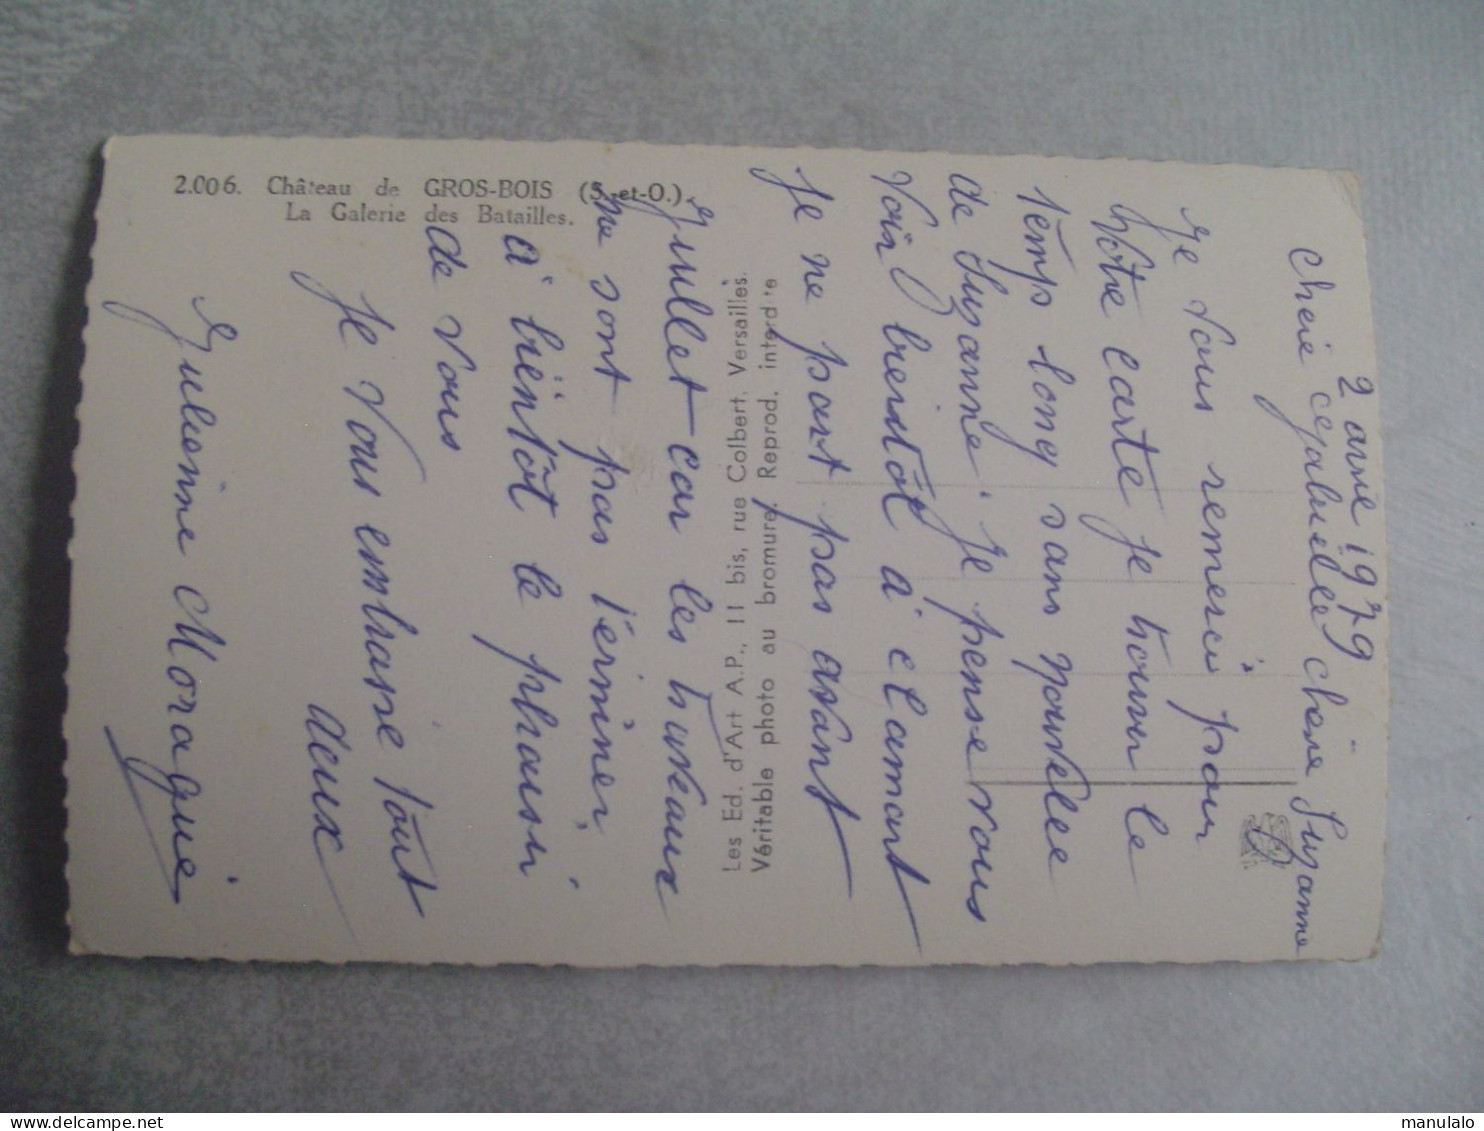 2.006. Château de GROS-BOIS (S.-et-O.).
La Galerie des Batailles.
Les Ed. d'Art A.P., 11 bis, rue Colbert, Versailles.
Véritable photo au bromure, Reprod. interdite
2 avril 1979
chere Suzanne
Je vous remercie pour
Votre carte je trouver le
temps long sans nouvelle
de Suzanne. je pense vous
Voir bientôt à clamart
Je ne part pas avant
Juillet car les traveaux
ne sont pas términer
à bientôt le plaisir
de vous
Je Vous embrasse tout
deux
Julienne Morague
manulalo